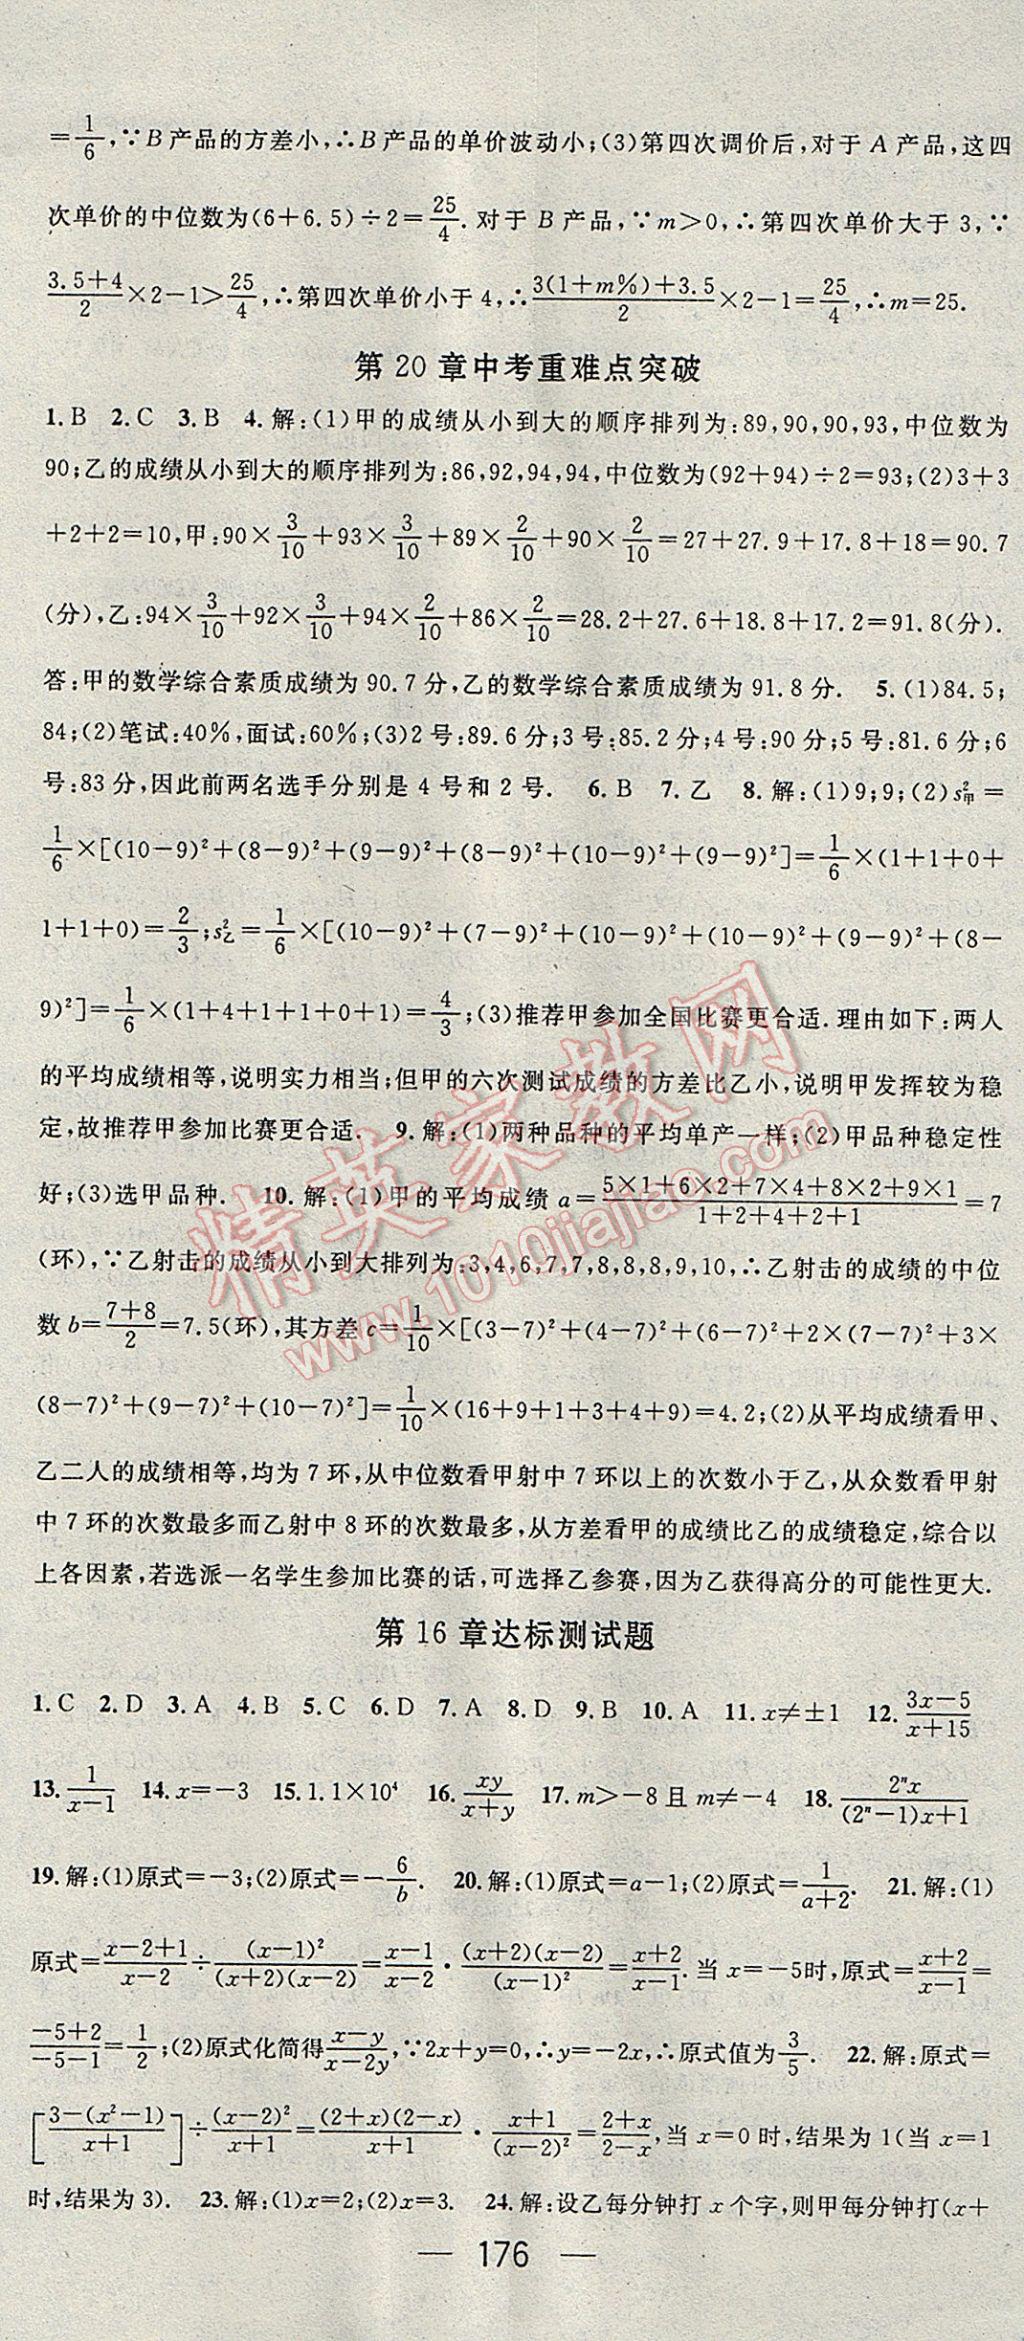 =1/6,∵B产品的方差小,∴B产品的单价波动小;(3)第四次调价后,对于A产品,这四
次单价的中位数为(6+6.5)÷2=25/4.对于B产品,∵m>0,∴第四次单价大于3,∵
(3.5+4)/2×2-1>25/4,∴第四次单价小于4,∴(3(1+m%)+3.5)/2×2-1=25/4,∴m=25.
第20章中考重难点突破
1.B 2.C 3.B 4.解:(1)甲的成绩从小到大的顺序排列为:89,90,90,93,中位数为
90;乙的成绩从小到大的顺序排列为:86,92,94,94,中位数为(92+94)÷2=93;(2)3+3
+2+2=10,甲:90×3/10+93×3/10+89×2/10+90×2/10=27+27.9+17.8+18=90.7
(分),乙:94×3/10+92×3/10+94×2/10+86×2/10=28.2+27.6+18.8+17.2=91.8(分).
答:甲的数学综合素质成绩为90.7分,乙的数学综合素质成绩为91.8分. 5.(1)84.5;
84;(2)笔试:40%,面试:60%;(3)2号:89.6分;3号:85.2分;4号:90分;5号:81.6分;6
号:83分,因此前两名选手分别是4号和2号. 6.B 7.乙 8.解:(1)9;9;(2)s²甲=
1/6×[(10-9)²+(8-9)²+(9-9)²+(8-9)²+(10-9)²+(9-9)²]=1/6×(1+1+0+
1+1+0)=2/3;s²乙=1/6×[(10-9)²+(7-9)²+(10-9)²+(10-9)²+(9-9)²+(8-
9)²]=1/6×(1+4+1+1+0+1)=4/3;(3)推荐甲参加全国比赛更合适.理由如下:两人
的平均成绩相等,说明实力相当;但甲的六次测试成绩的方差比乙小,说明甲发挥较为稳
定,故推荐甲参加比赛更合适. 9.解:(1)两种品种的平均单产一样;(2)甲品种稳定性
好;(3)选甲品种. 10.解:(1)甲的平均成绩a=(5×1+6×2+7×4+8×2+9×1)/(1+2+4+2+1)=7
(环),∵乙射击的成绩从小到大排列为:3,4,6,7,7,8,8,8,9,10,∴乙射击的成绩的中位
数b=(7+8)/2=7.5(环),其方差c=1/10×[(3-7)²+(4-7)²+(6-7)²+2×(7-7)²+3×
(8-7)²+(9-7)²+(10-7)²]=1/10×(16+9+1+3+4+9)=4.2;(2)从平均成绩看甲、
乙二人的成绩相等,均为7环,从中位数看甲射中7环以上的次数小于乙,从众数看甲射
中7环的次数最多而乙射中8环的次数最多,从方差看甲的成绩比乙的成绩稳定,综合以
上各因素,若选派一名学生参加比赛的话,可选择乙参赛,因为乙获得高分的可能性更大.
第16章达标测试题
1.C 2.D 3.A 4.B 5.C 6.D 7.A 8.D 9.B 10.A 11.x≠±1 12.(3x-5)/(x+15)
13.1/(x-1) 14.x=-3 15.1.1×10⁴ 16.xy/(x+y) 17.m>-8且m≠-4 18.2ⁿx/((2ⁿ-1)x+1)
19.解:(1)原式=-3;(2)原式=-6/b. 20.解:(1)原式=a-1;(2)原式=1/(a+2). 21.解:(1)
原式=(x-2+1)/(x-2)÷(x-1)²/((x+2)(x-2))=(x-1)/(x-2)·(x+2)(x-2)/(x-1)²=(x+2)/(x-1).当x=-5时,原式=(x+2)/(x-1)=
(-5+2)/(-5-1)=1/2;(2)原式化简得(x-y)/(x-2y),∵2x+y=0,∴y=-2x,∴原式值为3/5. 22.解:原式=
[(3-(x²-1))/(x+1)]÷(x-2)²/(x+1)=(2+x)(2-x)/(x+1)·(x+1)/(x-2)²=(2+x)/(2-x),当x=0时,结果为1(当x=1
时,结果为3). 23.解:(1)x=2;(2)x=3. 24.解:设乙每分钟打x个字,则甲每分钟打(x+
— 176 —
精英家教网
www.1010jiajiao.com